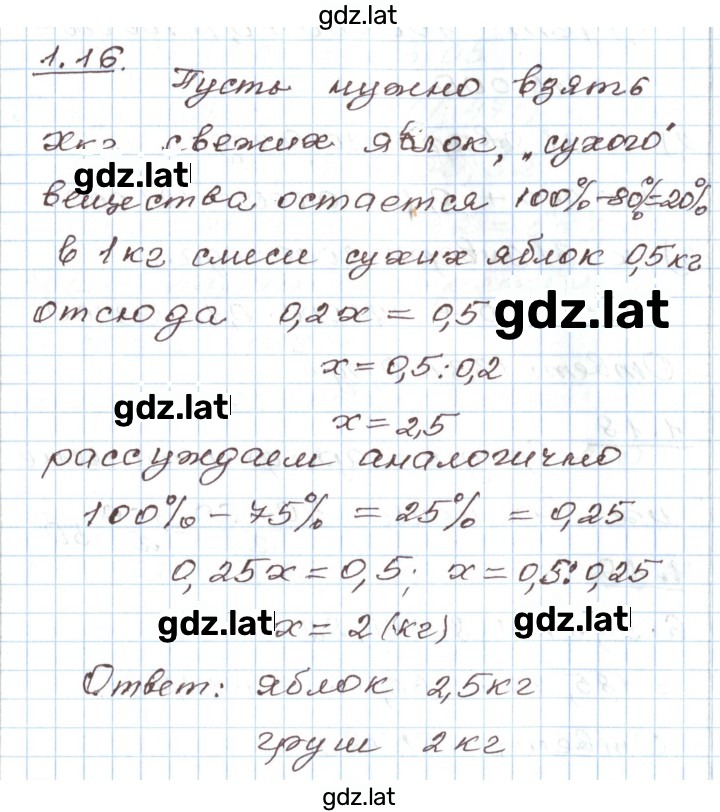 gdz.lat
1.16.
Пусть нужно взять
х кг свежих яблок, „сухого"
gdz.lat
вещества остается 100%-80%=20%
в 1 кг смеси сухих яблок 0,5 кг
отсюда 0,2x = 0,5 gdz.lat
x = 0,5 : 0,2
gdz.lat
x = 2,5
рассуждаем аналогично
100% - 75% = 25% = 0,25
0,25x = 0,5; x = 0,5 : 0,25
gdz.lat x = 2 (кг) gdz.lat
Ответ: яблок 2,5 кг
груш 2 кг
gdz.lat